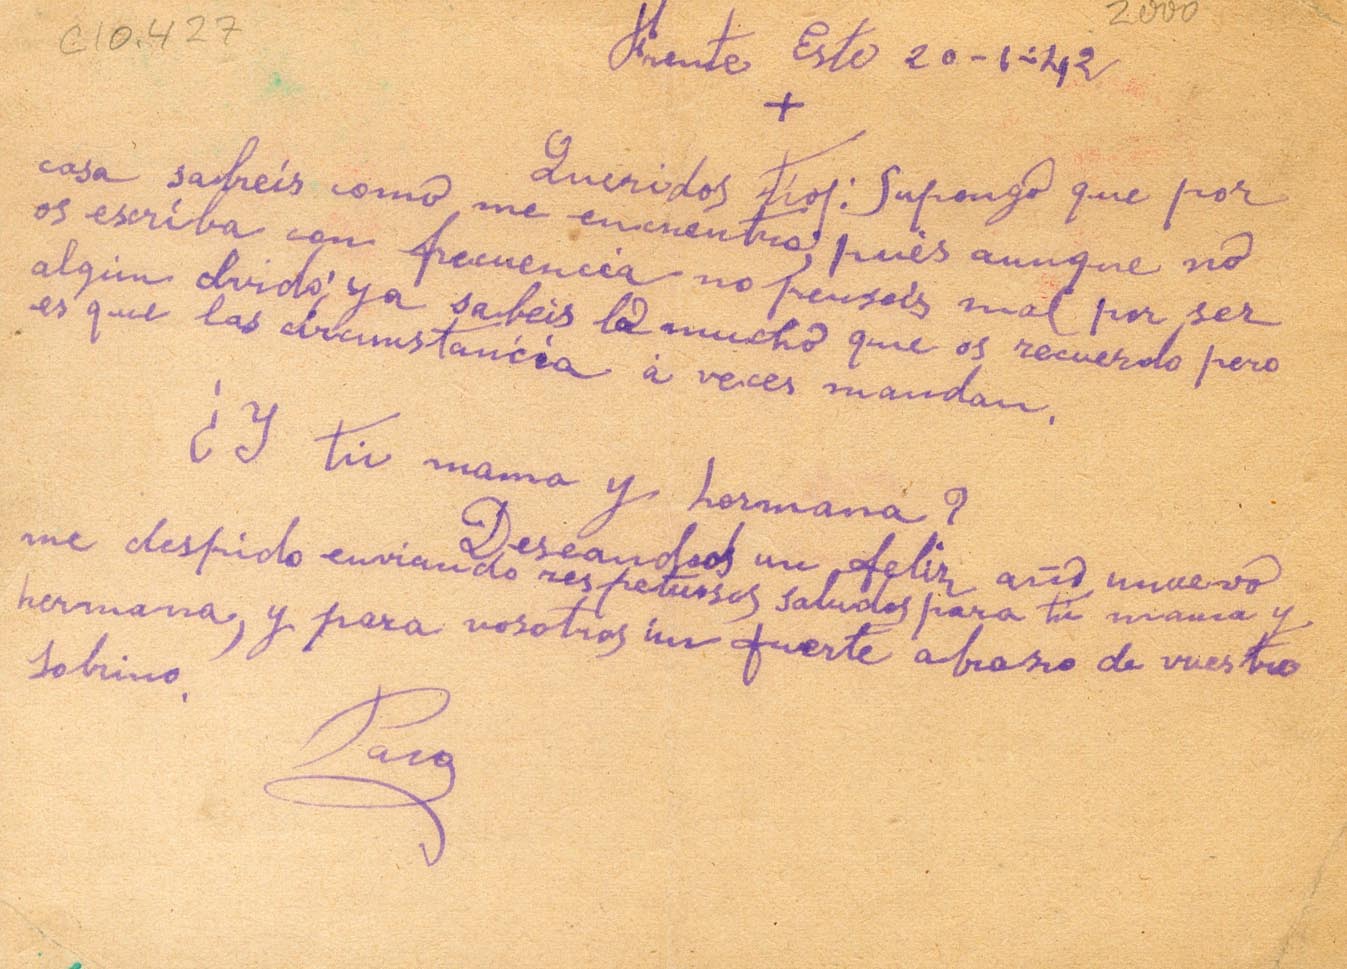 C10.427
2000
Frente Este 20-1-42
+
Queridos tíos: Supongo que por
casa sabreis como me encuentro, pués aunque no
os escriba con frecuencia no penseis mal por ser
algún olvido; ya sabeis lo mucho que os recuerdo pero
es que las circunstancia á veces mandan.
¿Y tu mama y hermana?
Deseandoos un feliz año nuevo
me despido enviando respetuosos saludos para tu mama y
hermana, y para vosotros un fuerte abrazo de vuestro
sobrino.
Paco